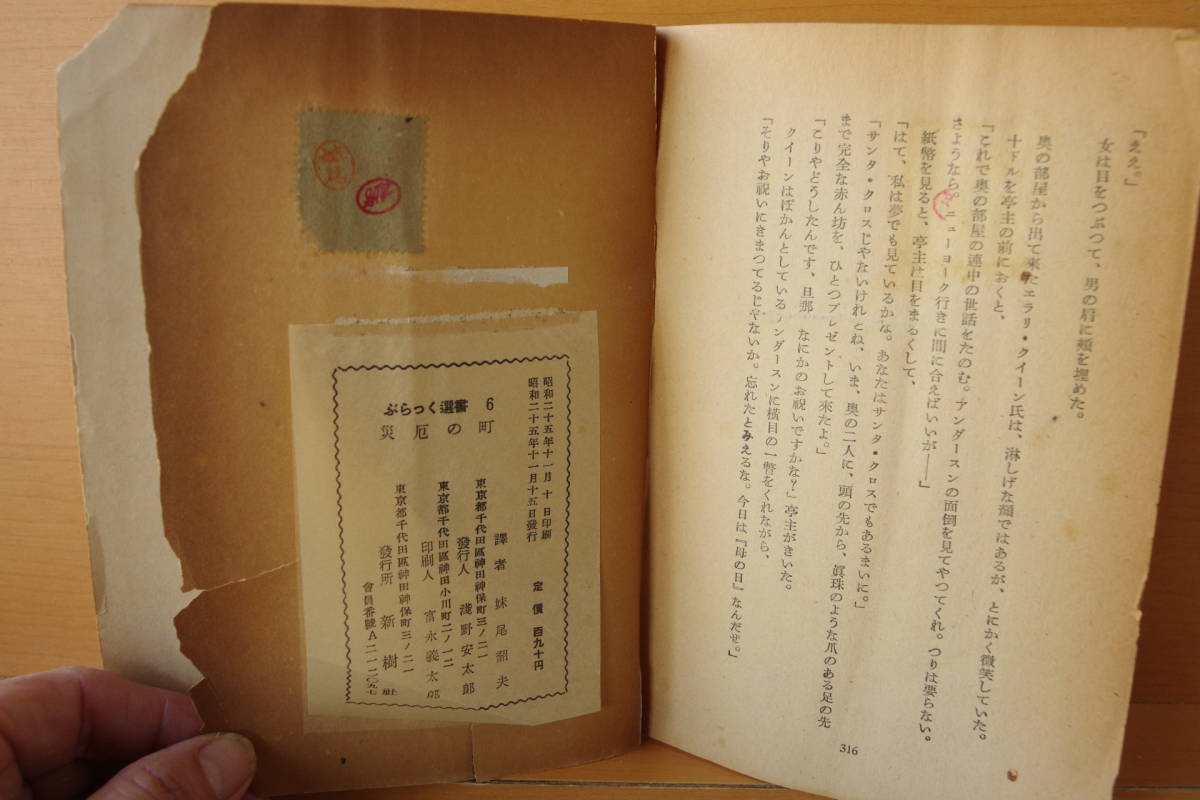 「ええ。」
女は目をつぶつて、男の肩に頰を埋めた。
奥の部屋から出て来たエラリ・クイーン氏は、淋しげな顔ではあるが、とにかく微笑していた。
十ドルを亭主の前におくと、
「これで奥の部屋の連中の世話をたのむ。アンダースンの面倒を見てやつてくれ。つりは要らない。
さようなら。ニューヨーク行きに間に合えばいいが――」
紙幣を見ると、亭主は目をまるくして、
「はて、私は夢でも見ているかな。あなたはサンタ・クロスでもあるまいに。」
「サンタ・クロスじやないけれどね、いま、奥の二人に、頭の先から、眞珠のような爪のある足の先
まで完全な赤ん坊を、ひとつプレゼントして来たよ。」
「こりやどうしたんです、旦那 なにかのお祝いですかな?」亭主がきいた。
クイーンはぽかんとしているアンダースンに横目の一瞥をくれながら、
「そりやお祝いにきまつてるじやないか。忘れたとみえるな。今日は『母の日』なんだぜ。」
316
昭和二十五年十一月 十 日印刷
昭和二十五年十一月十五日發行
定價 百九十円
ぶらっく選書 6
災厄の町
譯者 妹尾韶夫
東京都千代田區神田神保町三ノ二一
發行人 淺野安太郎
東京都千代田區神田小川町二ノ一二
印刷人 富永義太郎
東京都千代田區神田神保町三ノ二一
發行所 新樹社
會員番號A二一二〇九七